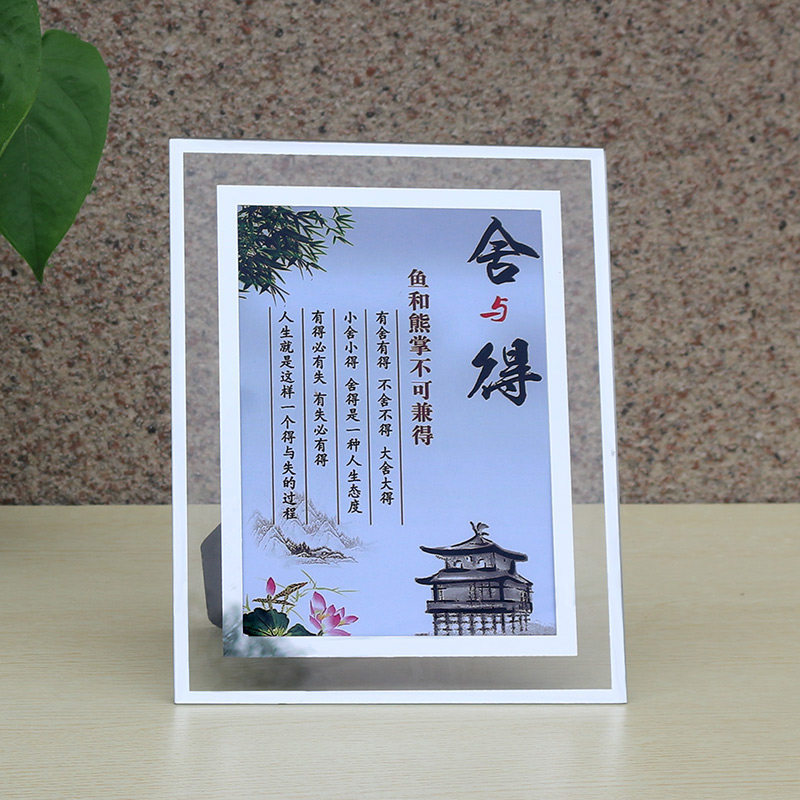 舍与得
鱼和熊掌不可兼得
有舍有得 不舍不得 大舍大得
小舍小得 舍得是一种人生态度
有得必有失 有失必有得
人生就是这样一个得与失的过程